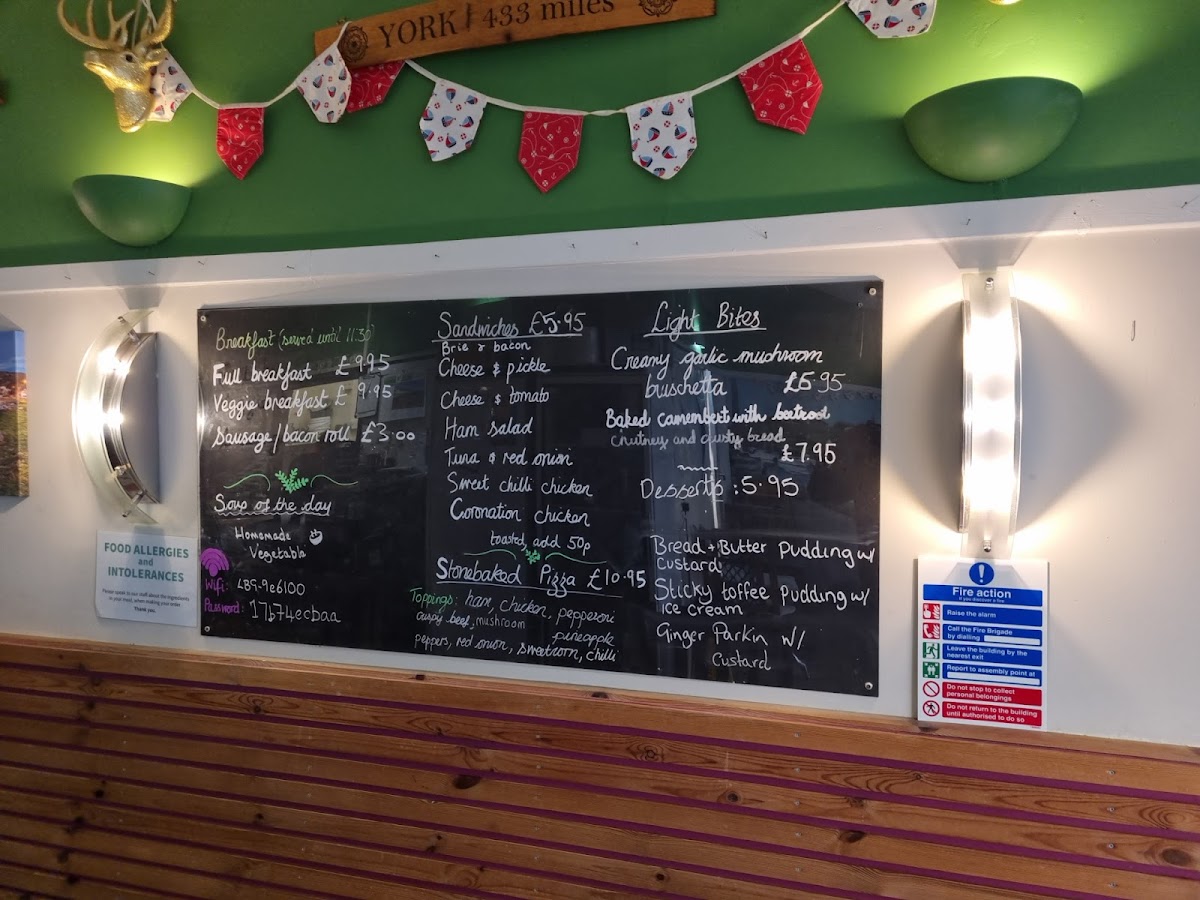 YORK 433 miles
Breakfast (served until 11:30)
Full breakfast £9.95
Veggie breakfast £9.95
Sausage/bacon roll £3.00
Soup of the day
Homemade
Vegetable
Wifi: 489-9e6100
Password: 17574ecbaa
Sandwiches £5.95
Brie & bacon
Cheese & pickle
Cheese & tomato
Ham salad
Tuna & red onion
Sweet chilli chicken
Coronation chicken
toasted, add 50p
Stonebaked Pizza £10.95
Toppings: ham, chicken, pepperoni
crispy beef, mushroom pineapple
peppers, red onion, sweetcorn, chilli
Light Bites
Creamy garlic mushroom
bruschetta £6.95
Baked camembert with beetroot
chutney and crusty bread
£7.95
Desserts: 5.95
Bread + Butter Pudding w/
Custard
Sticky toffee pudding w/
ice cream
Ginger Parkin w/
Custard
FOOD ALLERGIES
and
INTOLERANCES
Please speak to our staff about the ingredients
in your meal, when making your order
Thank you.
Fire action
If you discover a fire
Raise the alarm
Call the Fire Brigade
by dialling
Leave the building by the
nearest exit
Report to assembly point at
Do not stop to collect
personal belongings
Do not return to the building
until authorised to do so